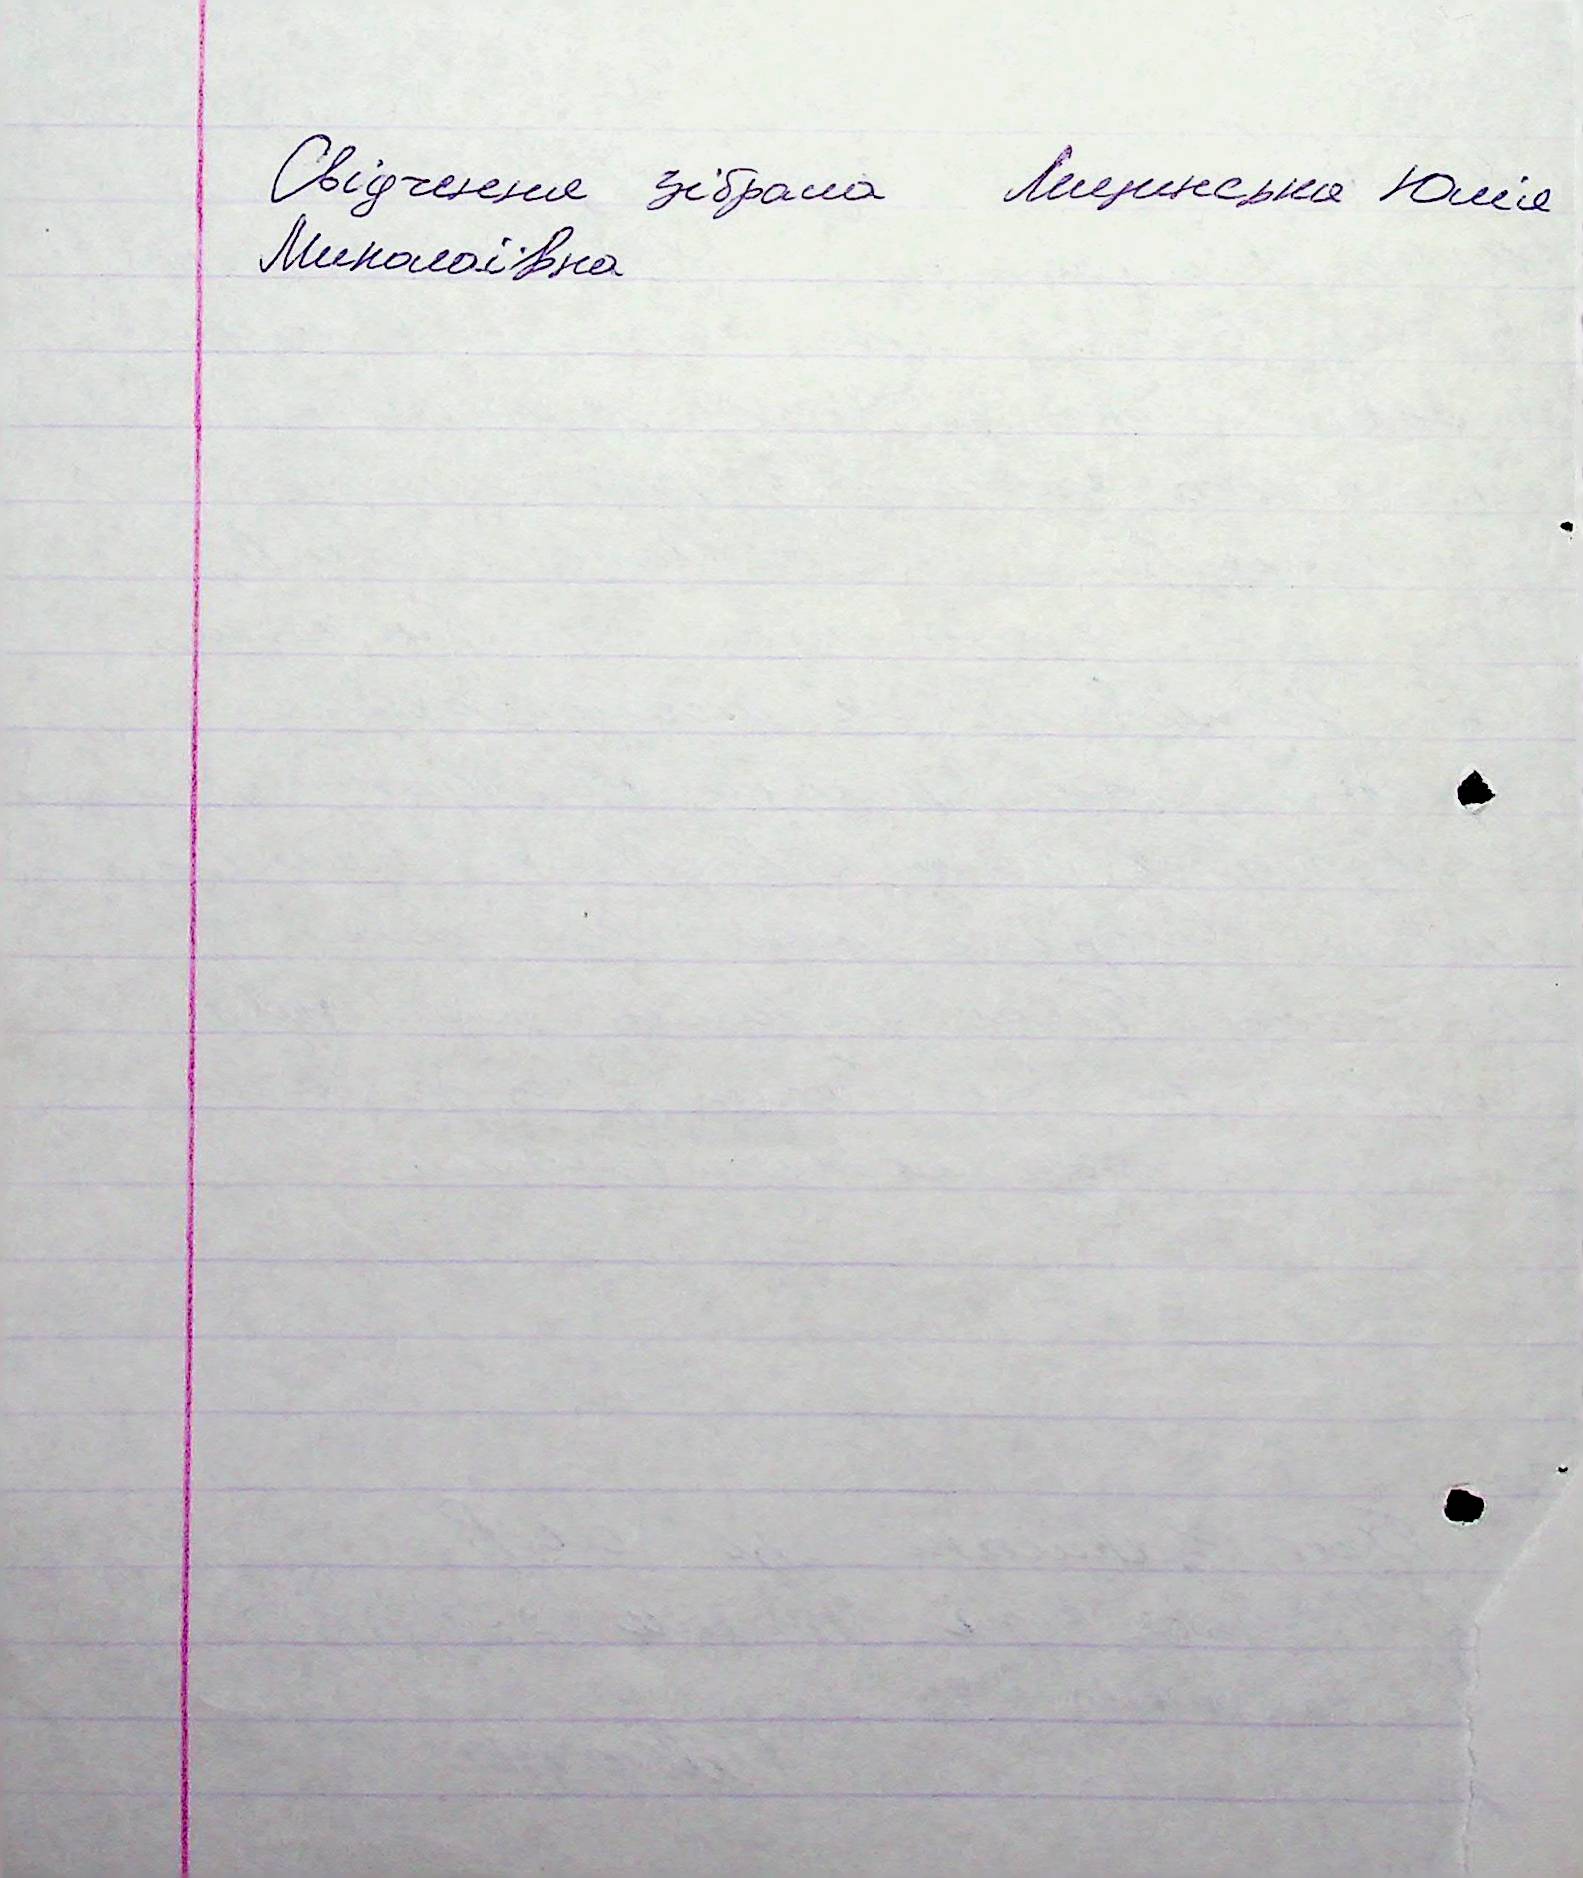 Свідчення зібрала Лищинська Юлія
Миколаївна